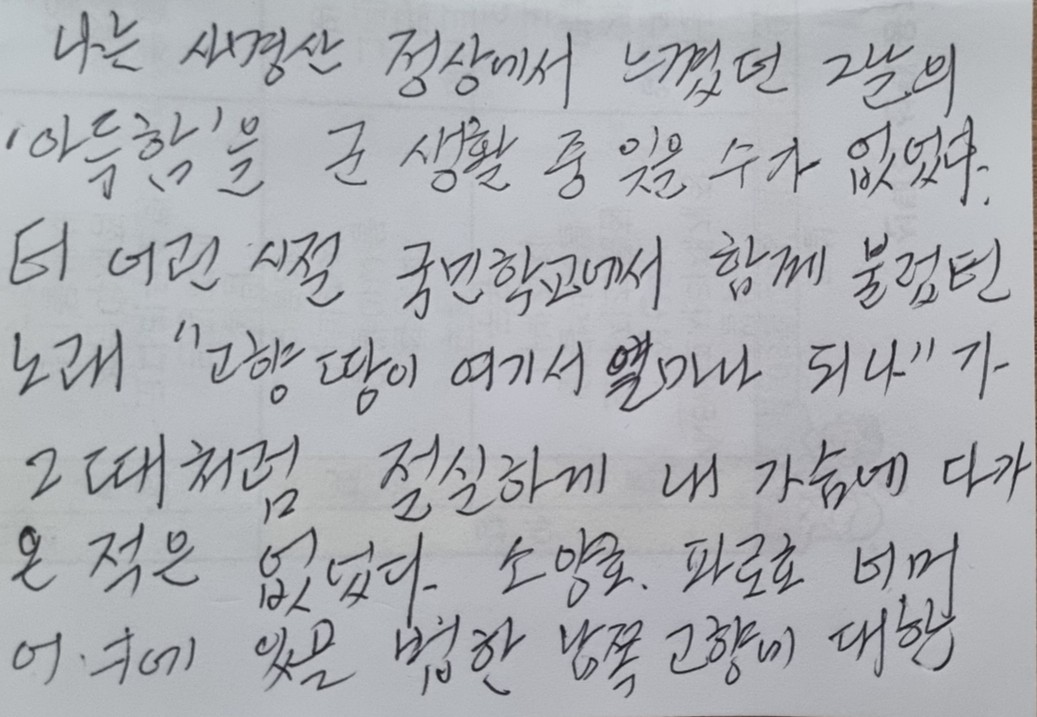 나는 사경산 정상에서 느꼈던 그날의
'아득함'을 군 생활 중 잊을 수가 없었다.
더 어린 시절 국민학교에서 함께 불렀던
노래 "고향땅이 여기서 얼마나 되나" 가
그때처럼 절실하게 내 가슴에 다가
온 적은 없었다. 소양호. 파로호 너머
어디에 있을 법한 남쪽 고향에 대한